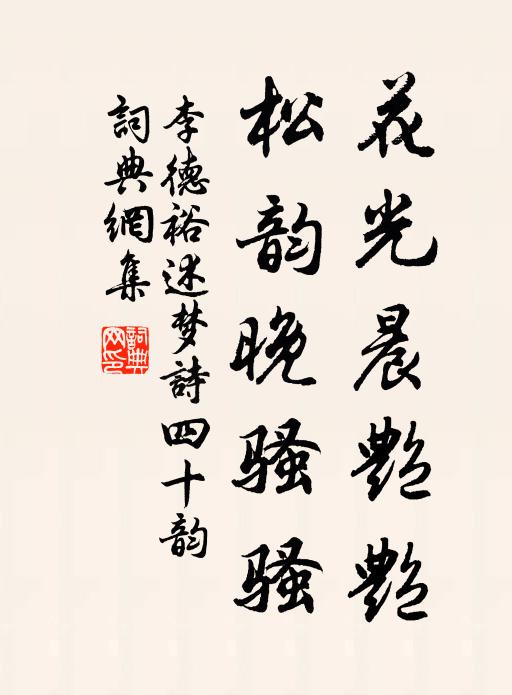 花光晨艷艷
松韵晚骚骚
李德裕述梦詩四十韵
詞典網集
詞典网印